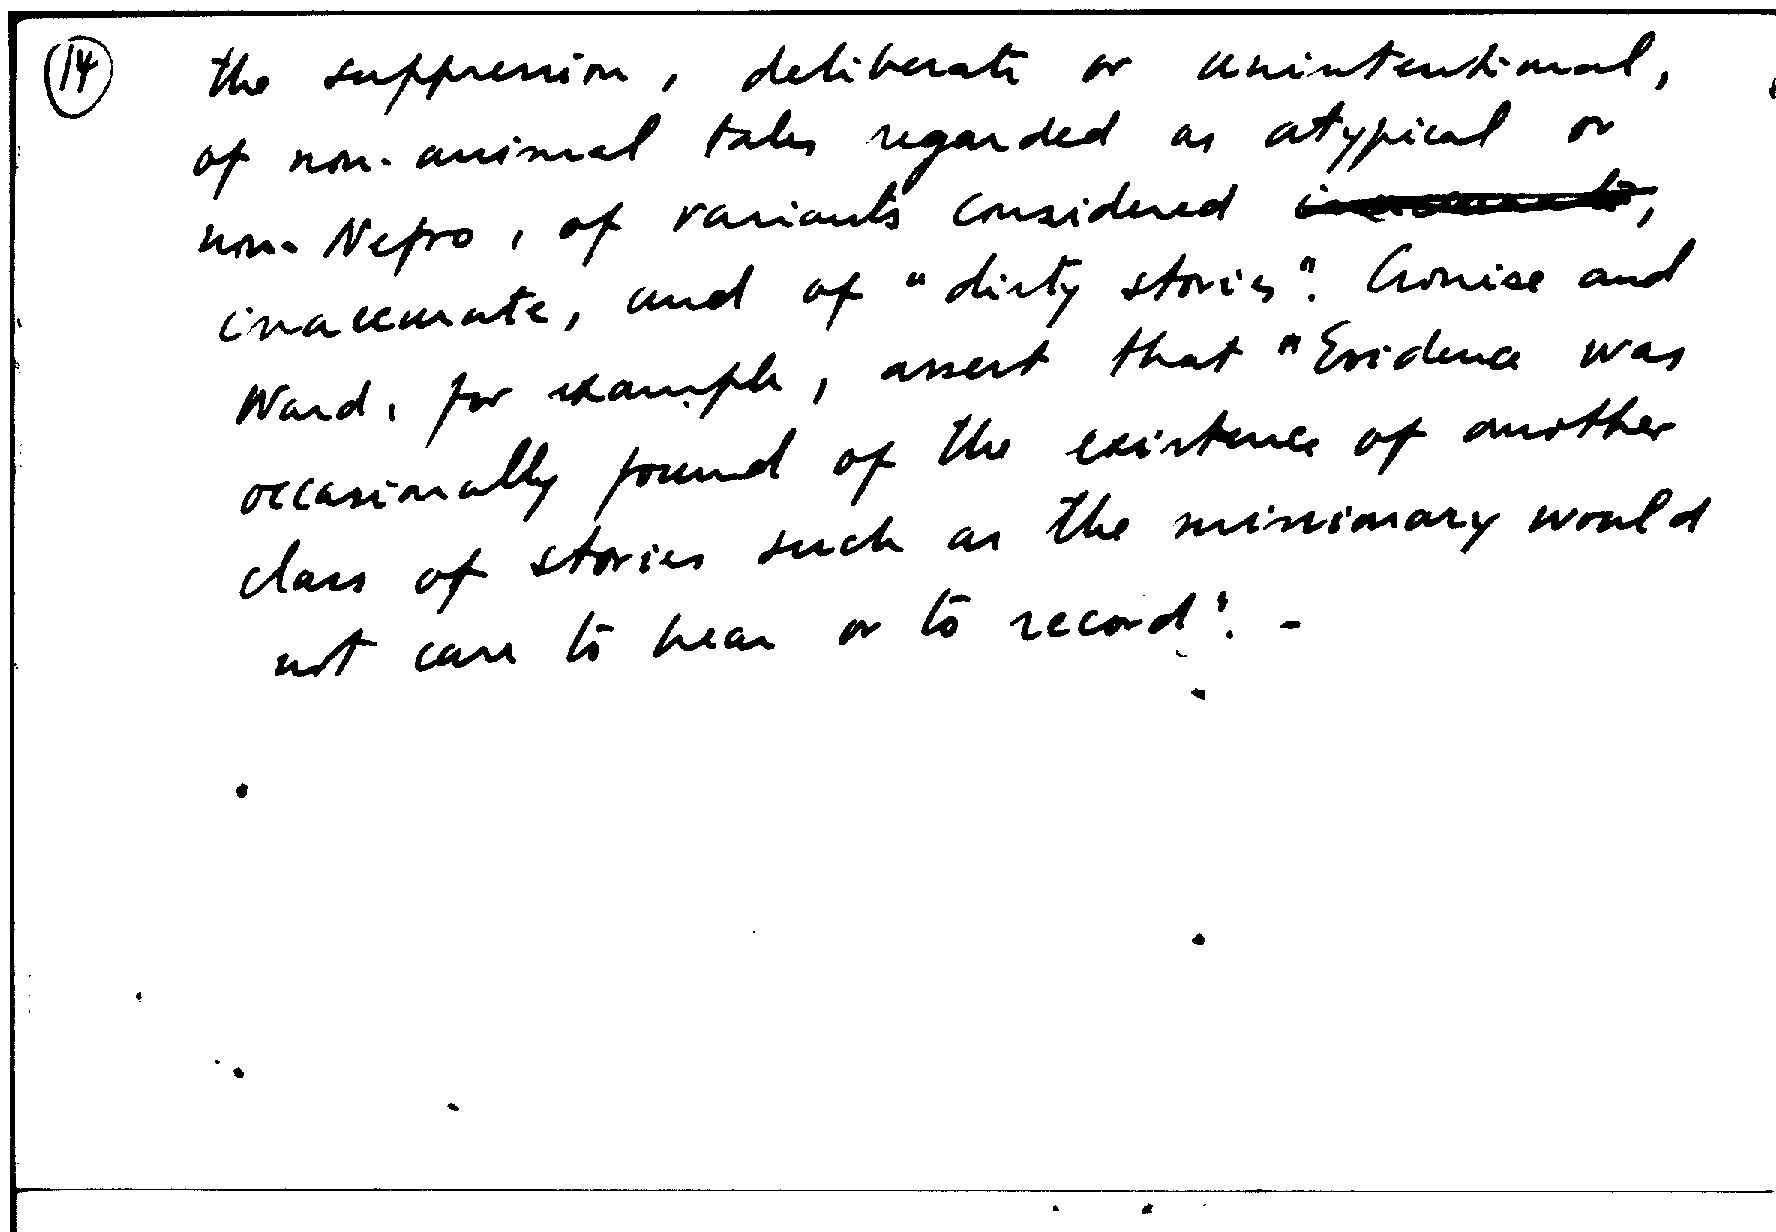 14 the suppression, deliberate or unintentional,
of non-animal tales regarded as atypical or
non-Negro, of variants considered
inaccurate, and of "dirty stories". Cronise and
Ward, for example, assert that "Evidence was
occasionally found of the existence of another
class of stories such as the missionary would
not care to hear or to record". -